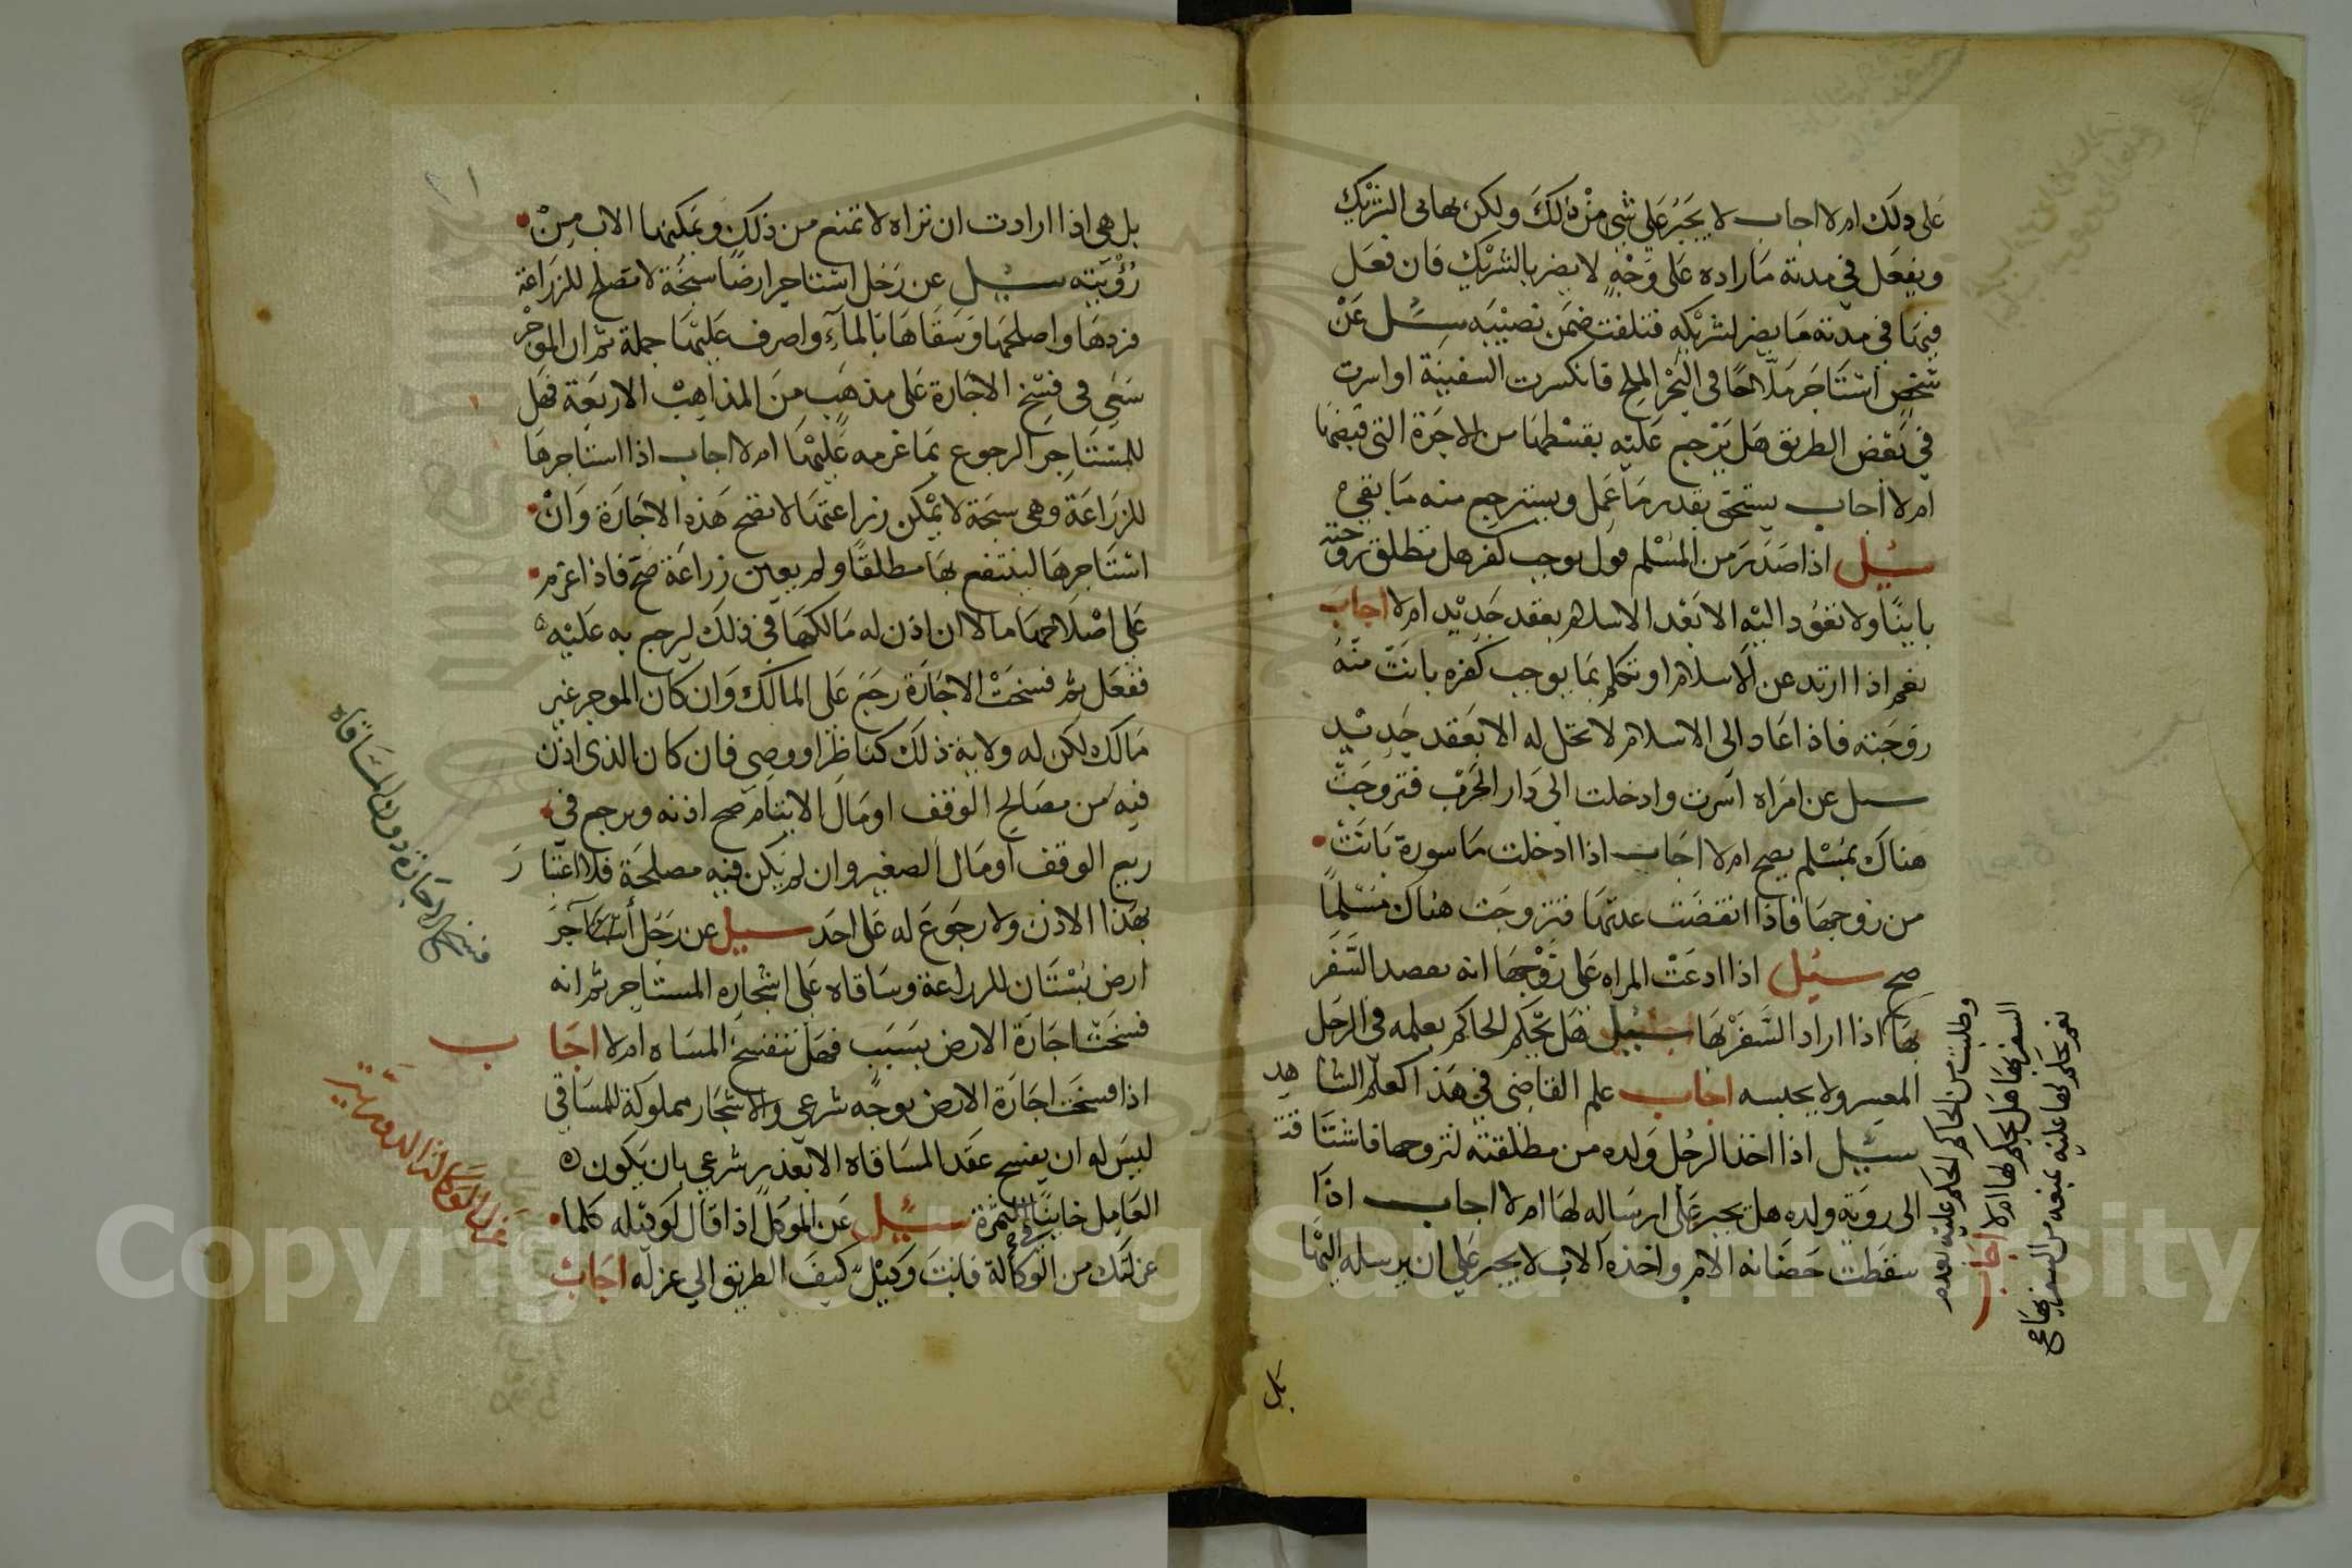 على ذلك ام لا اجاب لا يجبر على شي من ذلك ولكن يهاني الشريك
ويفعل في مدته ما اراده على وجه لا يضر بالشريك فان فعل
فيها في مدته ما يضر لشريكه فتلفت ضمن نصيبه سئل عن
شخص استاجر ملاحا في البحر الملح فانكسرت السفينة او اسرت
في بعض الطريق هل يرجع عليه بقسطها من الاجرة التي قبضها
ام لا اجاب يستحق بقدر ما عمل ويسترجع منه ما بقي
سئل اذا صدر من المسلم قول يوجب كفر هل تطلق زوجته
باينا ولا تعود اليه الا بعد الاسلام بعقد جديد ام لا اجاب
نعم اذا ارتد عن الاسلام او تكلم بما يوجب كفره بانت منه
زوجته فاذا عاد الى الاسلام لا تحل له الا بعقد جديد
سئل عن امراه اسرت وادخلت الى دار الحرب فتزوجت
هناك بمسلم يصح ام لا اجاب اذا ادخلت ماسورة بانت
من زوجها فاذا انقضت عدتها فتزوجت هناك مسلما
صح سئل اذا ادعت المراه على زوجها انه يقصد السفر
بها اذا اراد السفر بها سئل هل يحكم الحاكم بعلمه في الرجل
المعسر ولا يحبسه اجاب علم القاضي في هذا كعلم الشاهد
سئل اذا اخذ الرجل ولده من مطلقته لتزوجها فاشتاقت
الى روية ولده هل يجبر على ارساله لها ام لا اجاب اذا
سقطت حضانه الام واخذه الاب لا يجبر على ان يرسله اليها
وطلبت من الحاكم الحكم عليه بعدم
السفر بها هل يحكم لها ام لا اجاب
نعم يحكم لها عليه بمنعه من السفر بها صح
بل
بل هي اذا ارادت ان تراه لا تمنع من ذلك ويمكنها الاب من
رؤيته سئل عن رجل استاجر ارضا سبخة لا تصلح للزراعة
فردها واصلحها وسقاها بالماء واصرف عليها جملة ثم ان الموجر
سعى في فسخ الاجارة على مذهب من المذاهب الاربعة فهل
للمستاجر الرجوع بما غرمه عليها ام لا اجاب اذا استاجرها
للزراعة وهي سبخة لا يمكن زراعتها لا تصح هذه الاجارة وان
استاجرها لينتفع بها مطلقا ولم يعين زراعة صح فاذا غرم
على اصلاحها مالا ان اذن له مالكها في ذلك ليرجع به عليه
ففعل ثم فسخت الاجارة رجع على المالك وان كان الموجر غير
مالك لكن له ولاية ذلك كناظر او وصي فان كان الذي اذن
فيه من مصالح الوقف او مال الايتام صح اذنه ويرجع في
ريع الوقف او مال الصغير وان لم يكن فيه مصلحة فلا اعتبار
بهذا الاذن ولا رجوع له على احد سئل عن رجل استاجر
ارض بستان للزراعة وساقاه على اشجاره المستاجر ثم انه
فسخت اجارة الارض بسبب فهل تنفسخ المساقاه ام لا اجاب
اذا فسخت اجارة الارض بوجه شرعي والاشجار مملوكة للمساقي
ليس له ان يفسخ عقد المساقاه الا بعذر شرعي بان يكون
العامل خاينا في الثمرة سئل عن الموكل اذا قال لوكيله كلما
عزلتك من الوكالة فانت وكيل كيف الطريق الى عزله اجاب
فسخ الاجارة دون المساقاه
عزل الوكالة الدورية